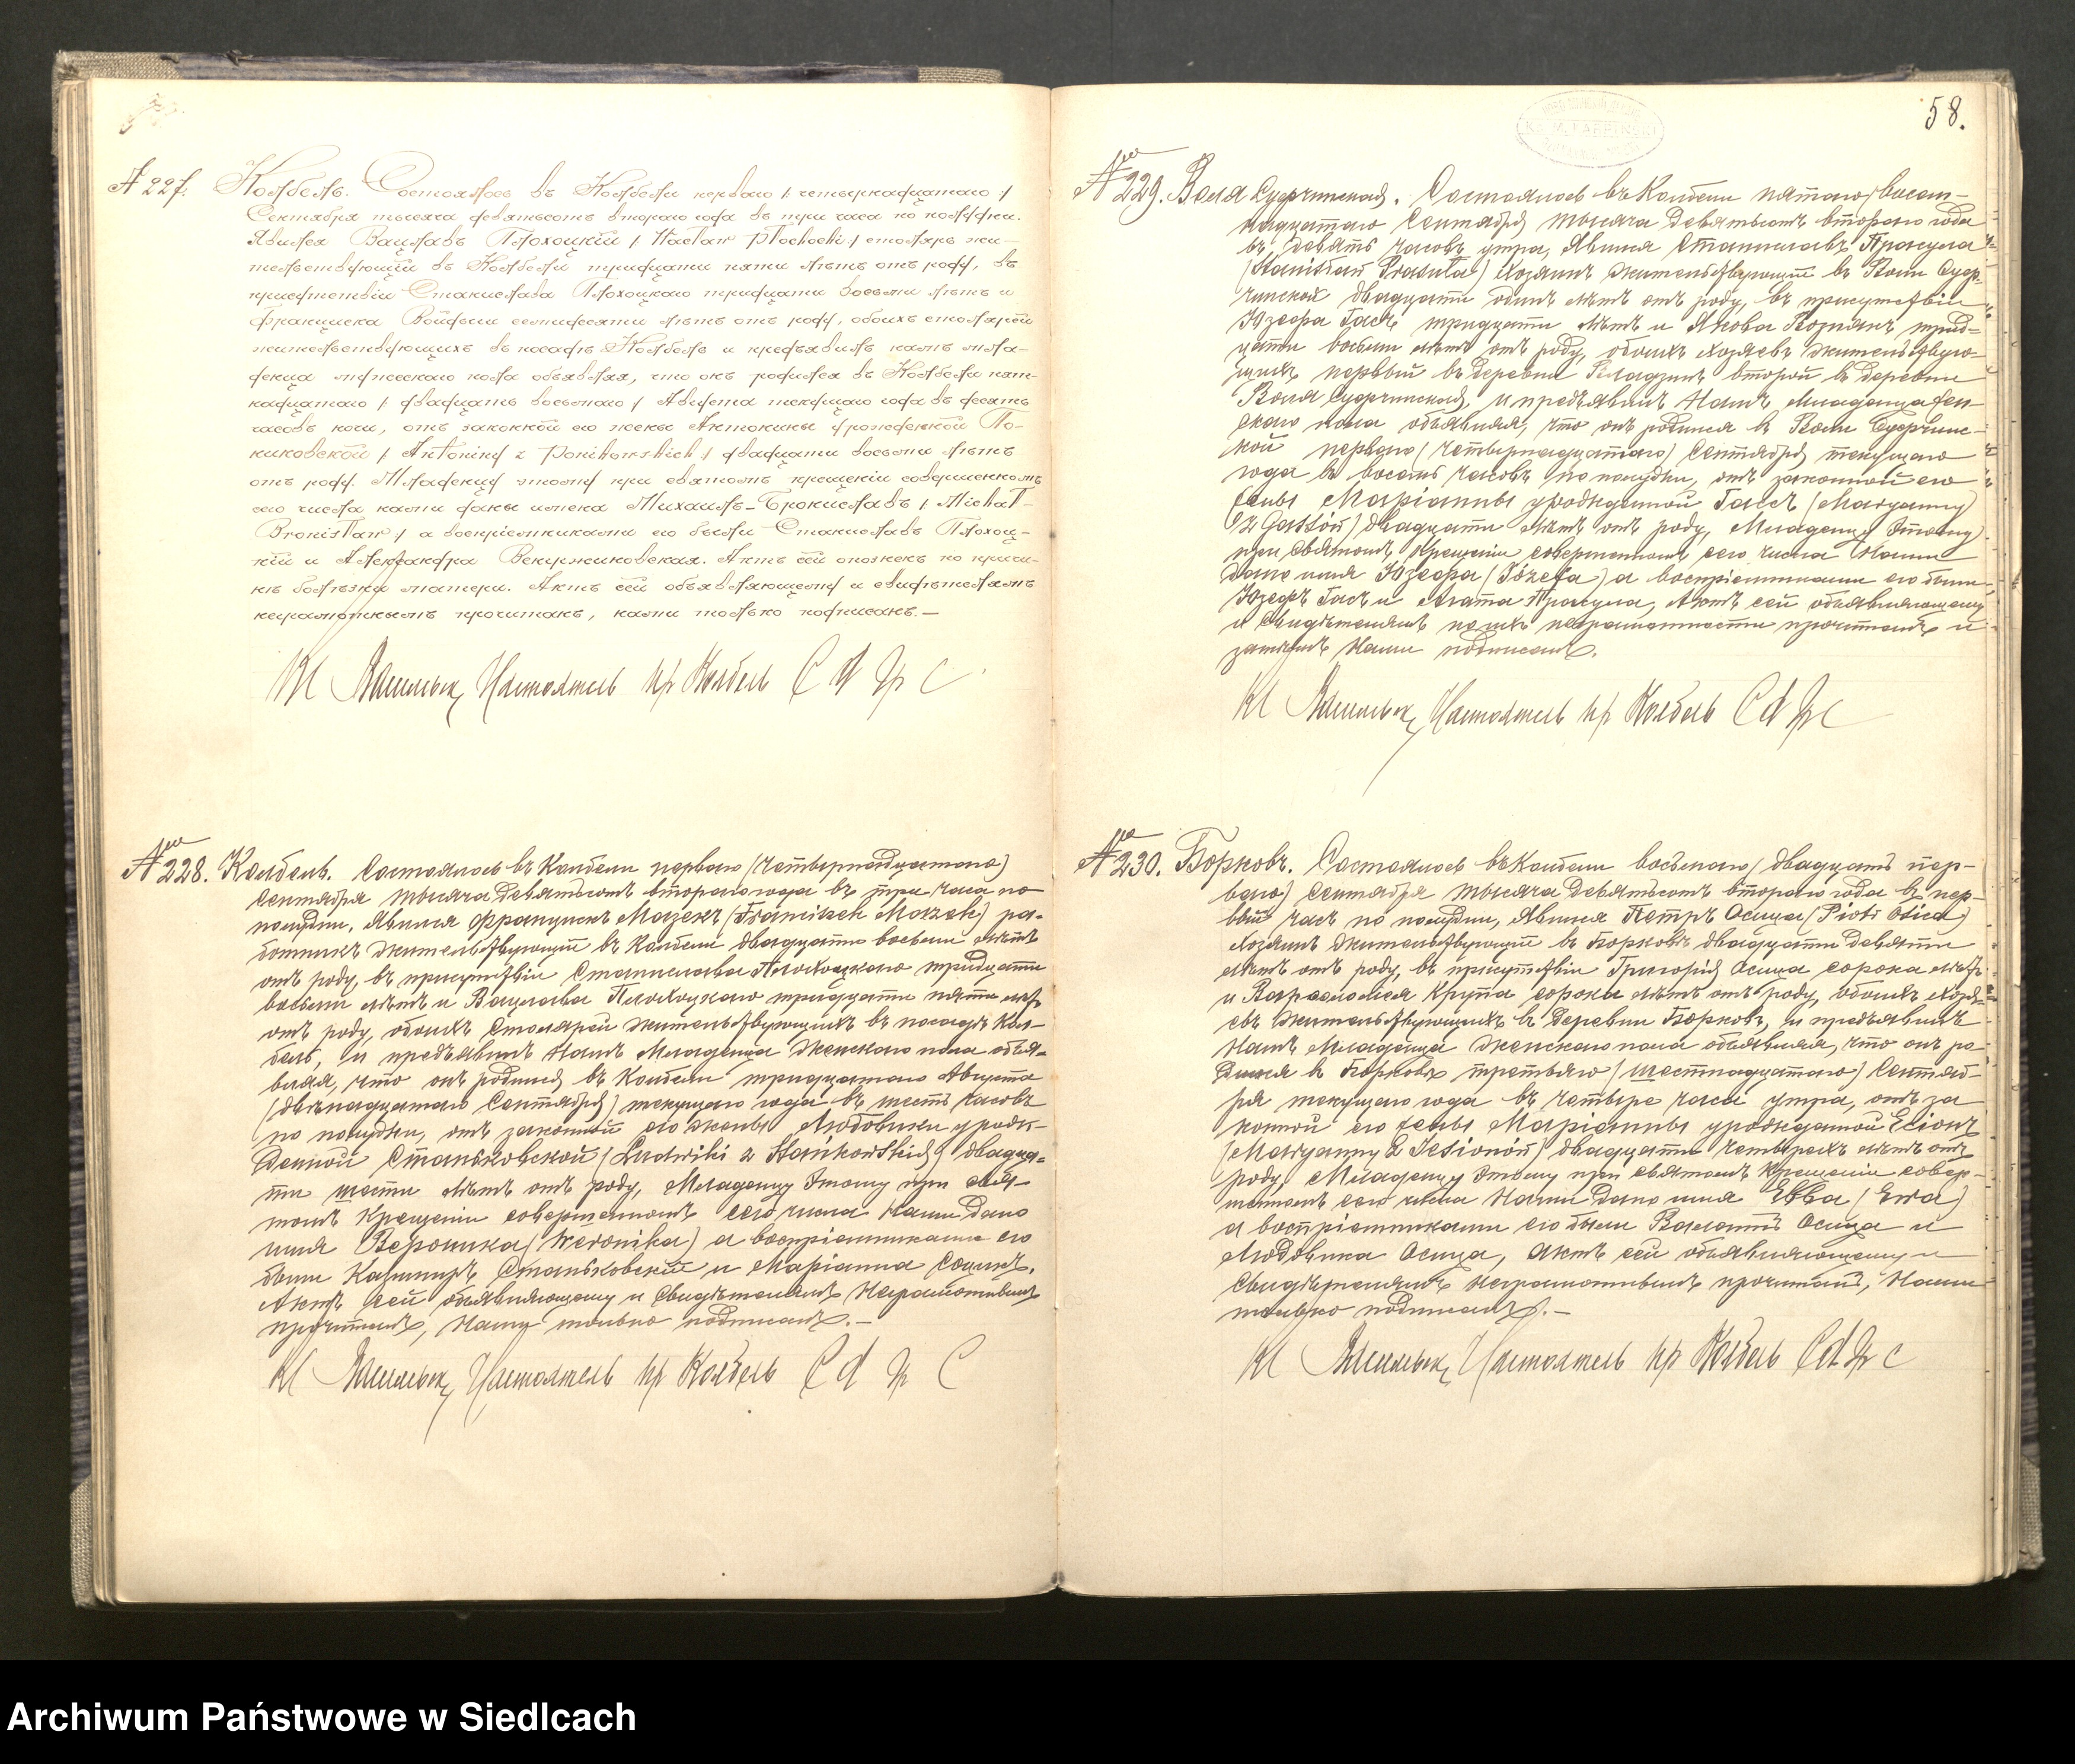 № 227. Колбель. Состоялось въ Колбели перваго /: четырнадцатаго :/
Сентября тысяча девятьсотъ втораго года въ три часа по полудни.
Явился Вацлавъ Плохоцкій /: Wacław Płochocki :/ столяръ жи-
тельствующій въ Колбели тридцати пяти лѣтъ отъ роду, въ
присутствіи Станислава Плохоцкаго тридцати восьми лѣтъ и
Франциска Войды семидесяти лѣтъ отъ роду, обоихъ столярей
жительствующихъ въ посадѣ Колбель и предъявилъ намъ мла-
денца мужескаго пола объявляя, что онъ родился въ Колбели пят-
надцатаго /: двадцать восьмаго :/ Августа текущаго года въ десять
часовъ ночи, отъ законной его жены Антонины урожденной По-
никовской /: Antoniny z Ponikowskich :/ двадцати восьми лѣтъ
отъ роду. Младенцу этому при святомъ крещеніи совершенномъ
сего числа нами даны имена Михаилъ-Брониславъ /: Michał-
Bronisław :/ а воспріемниками его были Станиславъ Плохоц-
кій и Александра Венцржиновская. Актъ сей опозненъ по причи-
нѣ болѣзни матери. Актъ сей объявляющему и свидѣтелямъ
неграмотнымъ прочитанъ, нами только подписанъ.—
Настоятель пр Колбель С d Гр С
№ 228. Колбель. Состоялось въ Колбели перваго (четырнадцатаго)
Сентября тысяча девятьсотъ втораго года въ три часа по
полудни, Явился Францискъ Мазекъ (Franciszek Mazek) ра-
ботникъ жительствующій въ Колбели двадцати восьми лѣтъ
отъ роду, въ присутствіи Станислава Плохоцкаго тридцати
восьми лѣтъ и Вацлава Плохоцкаго тридцати пяти лѣтъ
отъ роду, обоихъ столярей жительствующихъ въ посадѣ Кол-
бель, и предъявилъ намъ младенца женскаго пола объя-
вляя, что онъ родился въ Колбели тридцатаго Августа
(двѣнадцатаго Сентября) текущаго года въ шесть часовъ
по полудни, отъ законной его жены Людовики урож-
денной Станьковской (Ludwiki z Stańkowskich) двадца-
ти шести лѣтъ отъ роду, Младенцу этому при свя-
томъ Крещеніи совершенномъ сего числа нами дано
имя Вероника (Weronika) а воспріемниками его
были Казимиръ Станьковскій и Маріанна
Актъ сей объявляющему и свидѣтелямъ неграмотнымъ
прочитанъ, нами только подписанъ.—
Настоятель пр Колбель С d Гр С
58.
№ 229. Воля Суфчинская. Состоялось въ Колбели пятаго (восем-
надцатаго) Сентября тысяча девятьсотъ втораго года
въ девять часовъ утра, Явился Станиславъ Прасула
(Stanisław Prasuła) хозяинъ жительствующій въ Воли Суф-
чинской двадцати одинъ лѣтъ отъ роду, въ присутствіи
Юзефа Гасъ тридцати лѣтъ и Якова Вознякъ трид-
цати восьми лѣтъ отъ роду, обоихъ хозяевъ жительствую-
щихъ первый въ деревни второй въ деревни
Воля Суфчинская, и предъявилъ намъ младенца жен-
скаго пола объявляя, что онъ родился въ Воли Суфчинс-
кой перваго (четырнадцатаго) Сентября текущаго
года въ восемь часовъ по полудни, отъ законной его
жены Маріанны урожденной Гасъ (Maryanny
z Gassów) двадцати лѣтъ отъ роду, Младенцу этому
при Святомъ Крещеніи совершенномъ сего числа нами
дано имя Юзефа (Józefa) а воспріемниками его были
Юзефъ Гасъ и Агата Прасула, Актъ сей объявляющему
и свидѣтелямъ по ихъ неграмотности прочитанъ и
затѣмъ нами подписанъ.
Настоятель пр Колбель С d Гр С
№ 230. Борковъ. Состоялось въ Колбели восьмаго (двадцать пер-
ваго) Сентября тысяча девятьсотъ втораго года въ пер-
вый часъ по полудни, Явился Петръ Осица (Piotr Osica)
хозяинъ жительствующій въ Борковѣ двадцати девяти
лѣтъ отъ роду, въ присутствіи Григорія Осица сорока лѣтъ
и Варѳоломея Крупа сорока лѣтъ отъ роду, обоихъ хозя-
евъ жительствующихъ въ деревни Борковъ, и предъявилъ
намъ младенца женскаго пола объявляя, что онъ ро-
дился въ Борковѣ третьяго (шестнадцатаго) Сентяб-
ря текущаго года въ четыре часа утра, отъ за-
конной его жены Маріанны урожденной Есіонъ
(Maryanny z Jesionów) двадцати четырехъ лѣтъ отъ
роду, Младенцу этому при святомъ Крещеніи совер-
шенномъ сего числа нами дано имя Евва (Ewa)
а воспріемниками его были Валентъ Осица и
Людовика Осица, Актъ сей объявляющему и
свидѣтелямъ неграмотнымъ прочитанъ, нами
только подписанъ.—
Настоятель пр Колбель С d Гр С
Archiwum Państwowe w Siedlcach